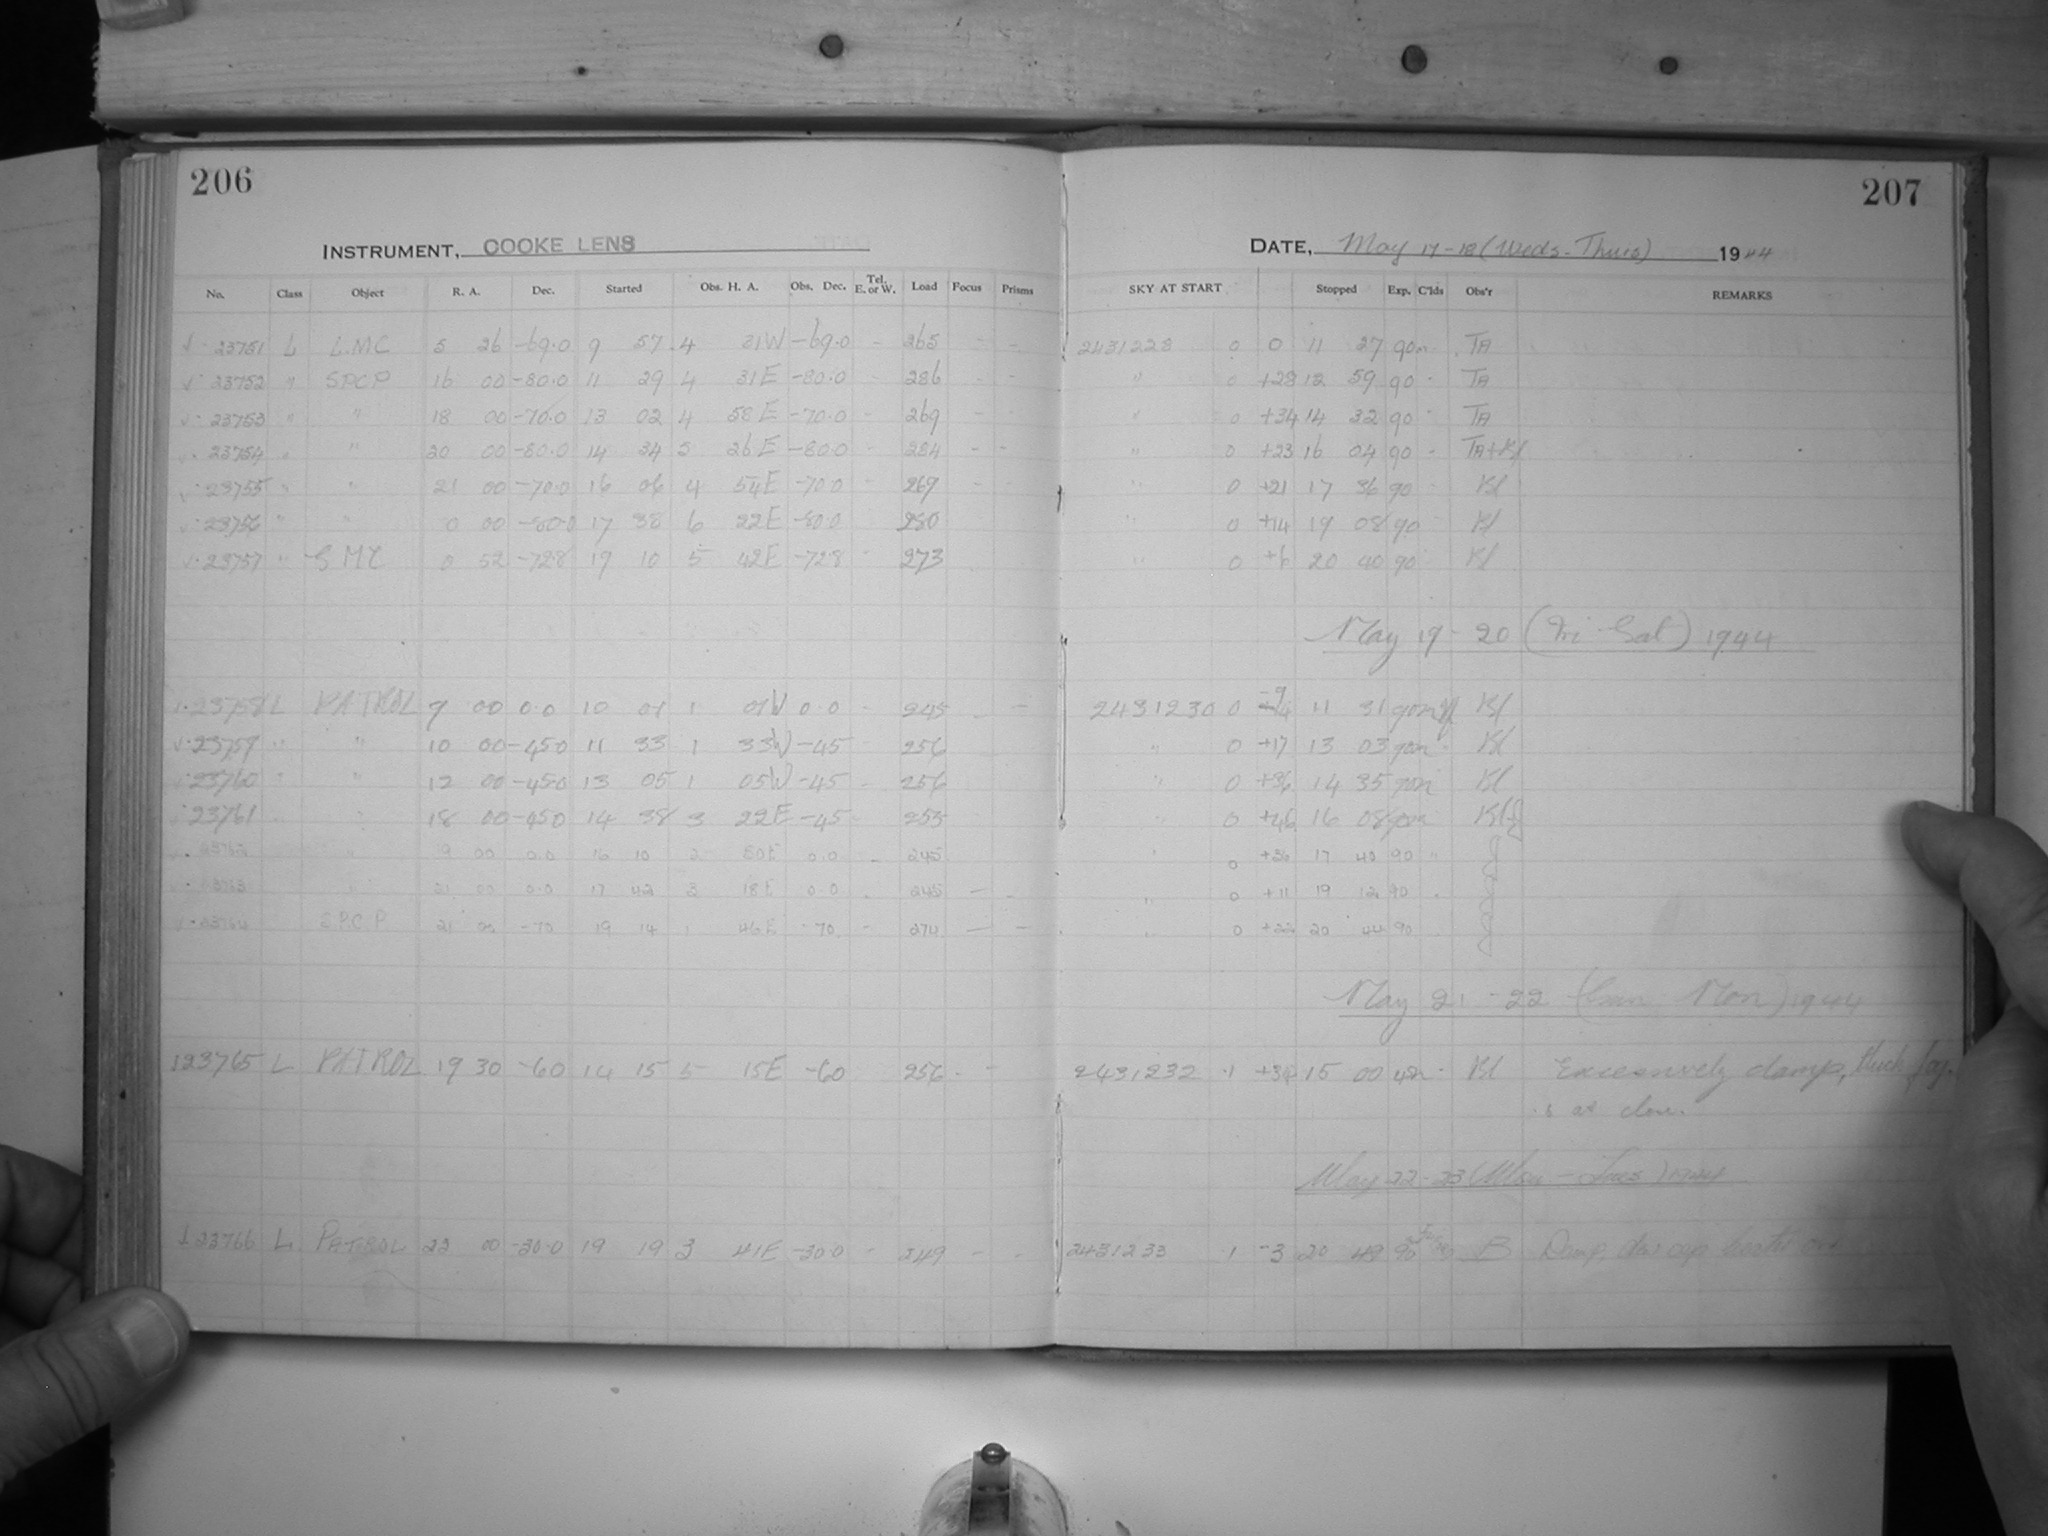 206
207
INSTRUMENT, COOKE LENS
DATE, May 17-18 (Weds-Thurs) 1944
No. Class Object R. A. Dec. Started Obs. H. A. Obs. Dec. Tel. E. or W. Load Focus Prisms SKY AT START Stopped Exp. C'lds Obs'r REMARKS
23751 L L.MC 5 26 -69.0 9 57 4 31W -69.0 - 265 - - 2431228 0 0 11 27 90m TA
23752 " SPCP 16 00 -80.0 11 29 4 31E -80.0 - 286 - - " 0 +28 12 59 90 - TA
23753 " " 18 00 -70.0 13 02 4 58E -70.0 - 269 - - " 0 +34 14 32 90 - TA
23754 " " 20 00 -80.0 14 34 5 26E -80.0 - 284 - - " 0 +23 16 04 90 - TA+Bl
23755 " " 21 00 -70.0 16 06 4 54E -70.0 - 269 - - " 0 +21 17 36 90 Bl
23756 " " 0 00 -80.0 17 38 6 22E -80.0 - 280 " 0 +14 19 08 90 Bl
23757 " SMC 0 52 -72.8 19 10 5 42E -72.8 - 273 " 0 +6 20 40 90 Bl
May 19-20 (Fri-Sat) 1944
23758 L PATROL 9 00 0.0 10 01 1 01W 0.0 - 245 - - 2431230 0 -9 11 31 90m Bl
23759 " " 10 00 -45.0 11 33 1 33W -45 - 256 " 0 +17 13 03 90m Bl
23760 " " 12 00 -45.0 13 05 1 05W -45 - 256 " 0 +36 14 35 90m Bl
23761 " 18 00 -45.0 14 38 3 22E -45 253 " 0 +46 16 08 90m Bl
23762 " 19 00 0.0 16 10 2 50E 0.0 - 245 " 0 +36 17 40 90 "
23763 " 21 00 0.0 17 42 3 18E 0.0 - 245 - - " 0 +11 19 12 90
23764 SPCP 21 00 -70 19 14 1 46E -70 - 274 - - " 0 +22 20 44 90
May 21-22 (Sun Mon) 1944
23765 L PATROL 19 30 -60 14 15 5 15E -60 256 - - 2431232 .1 +34 15 00 Bl Excessively damp, thick fog.
May 22-23 (Mon-Tues) 1944
23766 L PATROL 22 00 -30.0 19 19 3 41E -30.0 - 249 - - 2431233 .1 -3 20 49 90 B Damp,